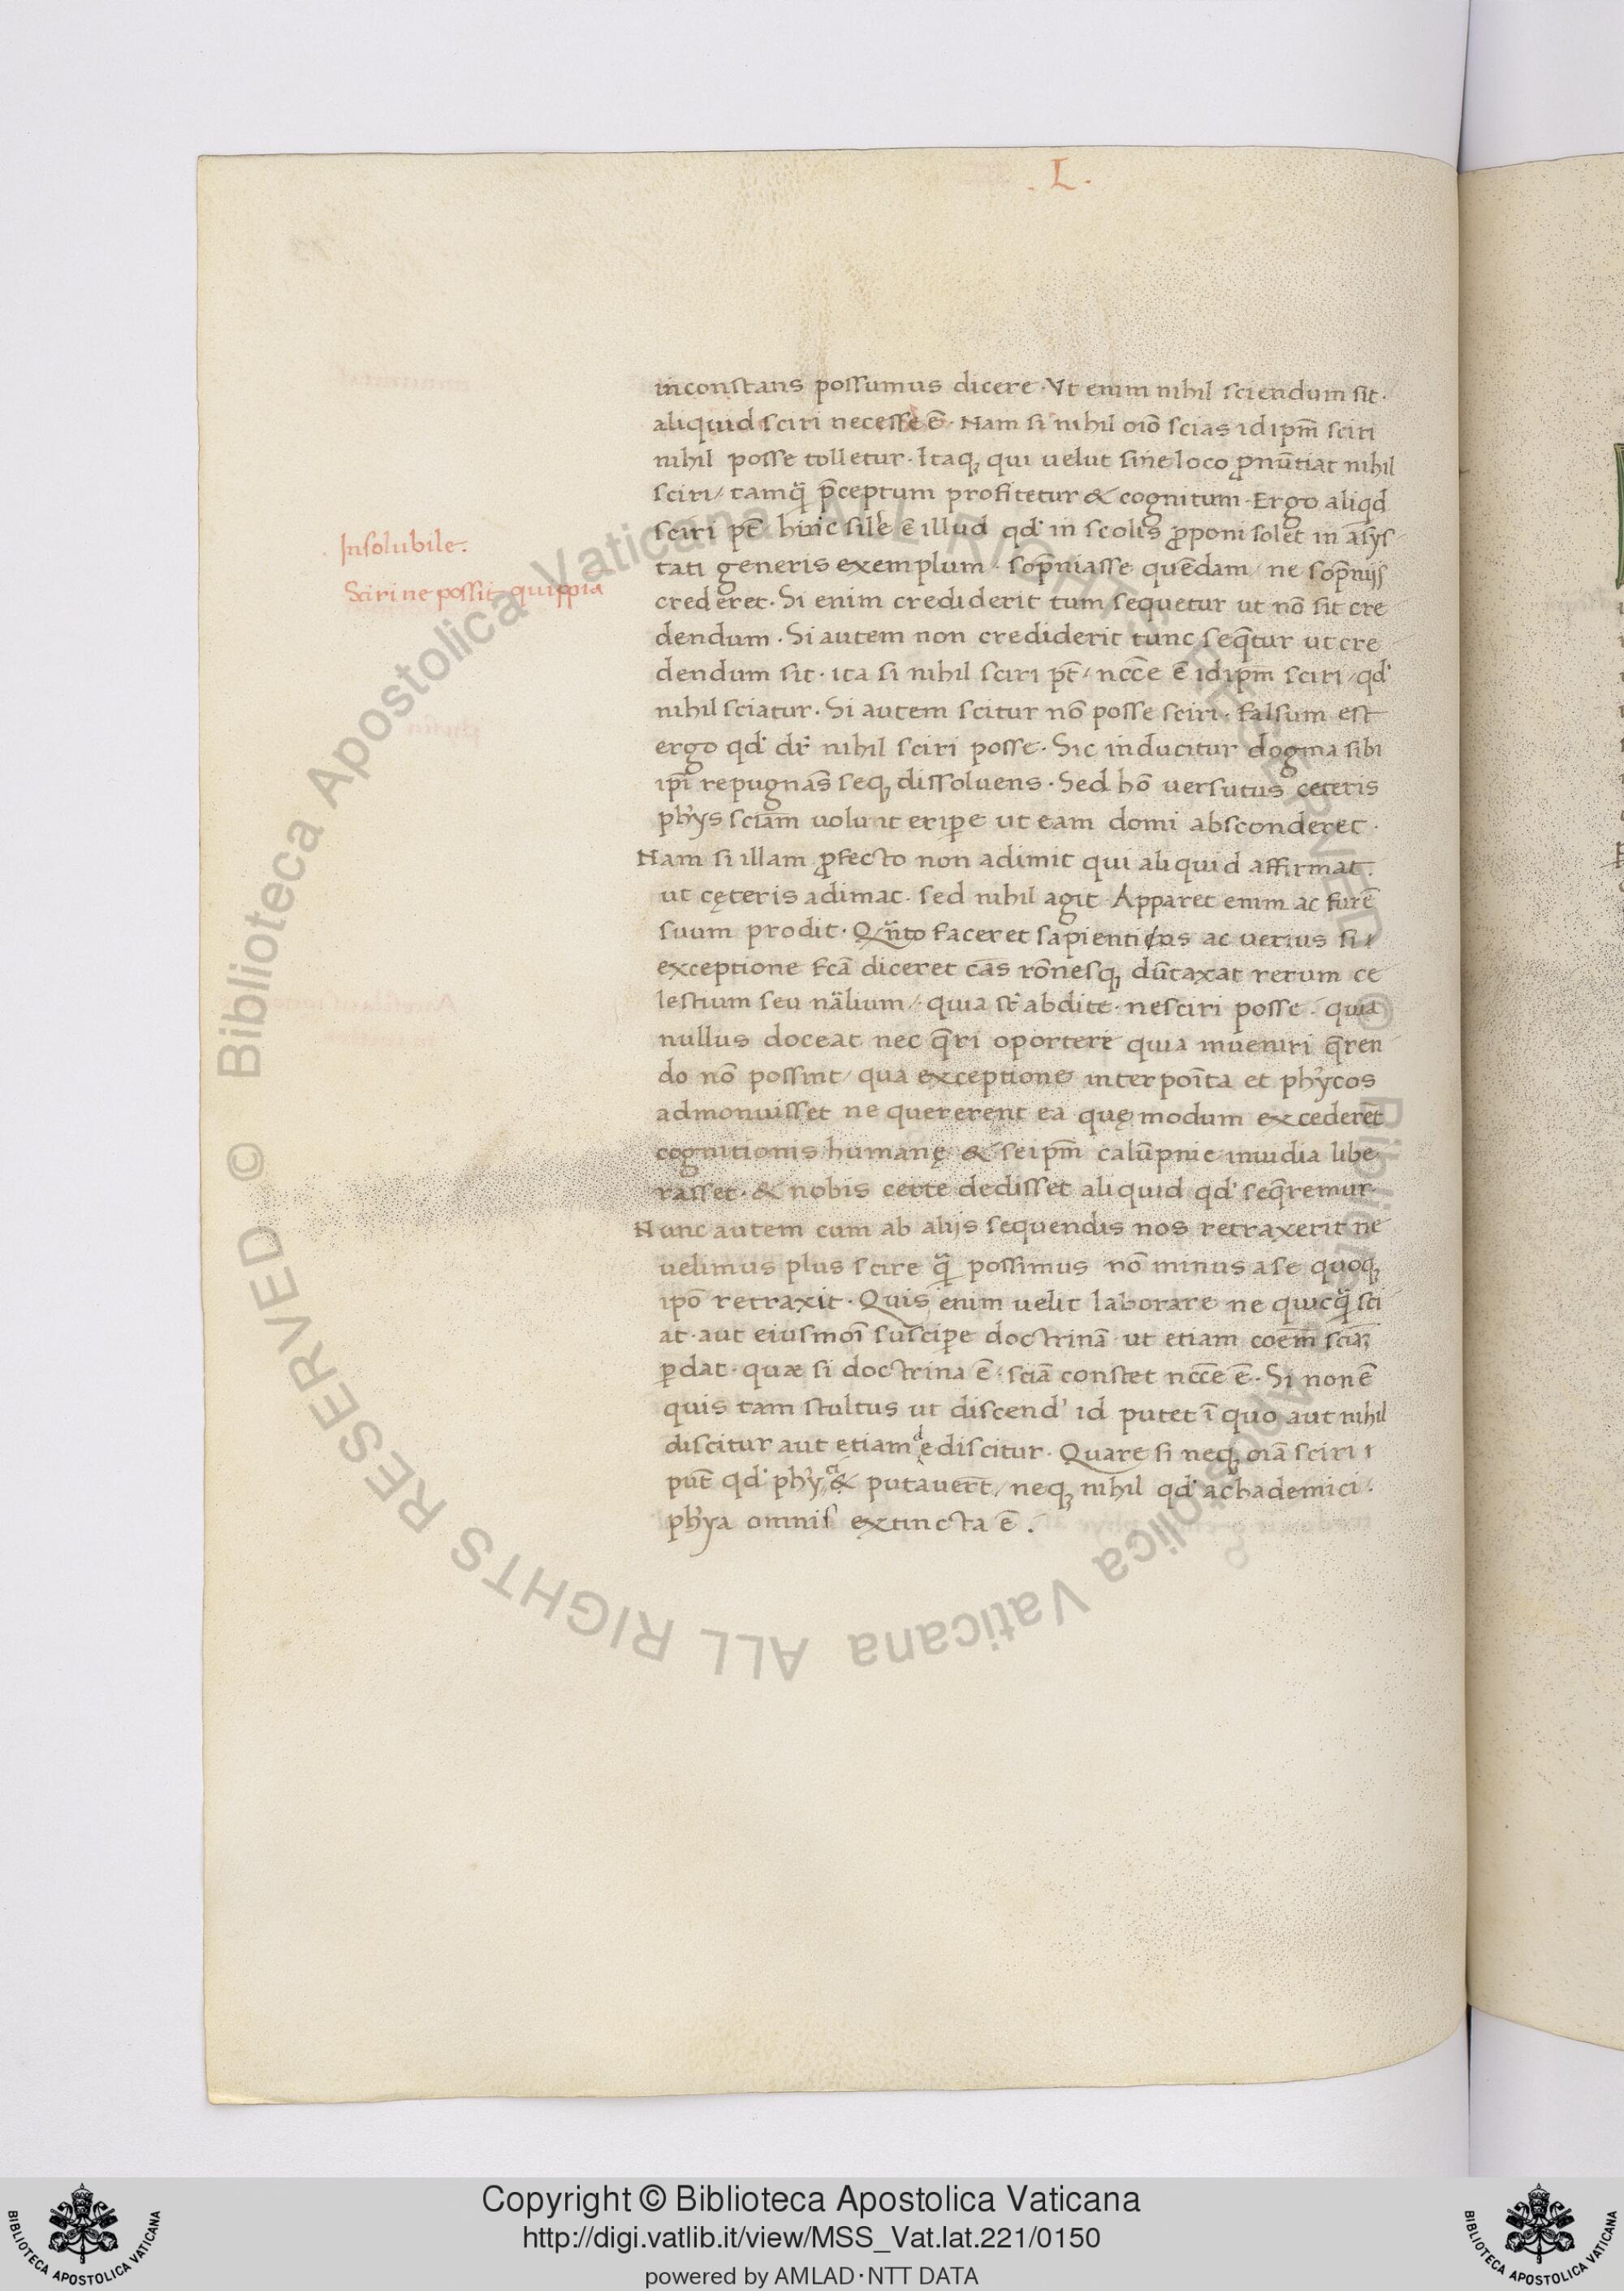 . L .
inconstans possumus dicere · Vt enim nihil sciendum sit ·
aliquid sciri necesse ē · Nam si nihil oīo scias id ipm̄ sciri
nihil posse tolletur · Itaq; qui uelut sine loco ꝓnūtiat nihil
sciri / tamq̄ p̄ceptum profitetur & cognitum · Ergo aliqd
sciri pt̄ hinc sile ē illud qd' in scolis ꝓponi solet in āsys
tati generis exemplum · sop̄niasse quēdam / ne sop̄nijs
crederet · Si enim crediderit tum sequetur ut nō sit cre
dendum · Si autem non crediderit tunc seq̄tur ut cre
dendum sit · ita si nihil sciri pt̄ / ncc̄e ē id ipm̄ sciri / qd'
nihil sciatur · Si autem scitur nō posse sciri · falsum est
ergo qd' dr̄ nihil sciri posse · Sic inducitur dogma sibi
ipī repugnās seq; dissoluens · Sed hō versutus ceteris
phỹs sciam̄ uolunt eriꝑe ut eam domi absconderet ·
Nam si illam ꝓfecto non adimit qui aliquid affirmat .
ut cęteris adimat · sed nihil agit · Apparet enim ac furē
suum prodit · Qn̄to faceret sapientius ac uerius si
exceptione fcā diceret cās rōnesq; dūtaxat rerum ce
lestium seu nālium / quia st̄ abdite · nesciri posse · quia
nullus doceat nec q̄ri oportere quia inueniri q̄ren
do nō possint / qua exceptione interpoīta et phỹcos
admonuisset ne quererent ea quę modum excederēt
cognitionis humanę & seipm̄ calūpnie inuidia libe
rasset · & nobis certe dedisset aliquid qd' seq̄remur ·
Nunc autem cum ab alijs sequendis nos retraxerit ne
uelimus plus scire q̄ possimus nō minus a se quoq;
ipō retraxit · Quis enim uelit laborare ne quicq̄ sci
at · aut eiusmoī susciꝑe doctrinā ut etiam coēm sciā;
ꝑdat · quæ si doctrina ē · sciā constet ncc̄e ē · Si non ē
quis tam stultus ut discend' id putet ī quo aut nihil
discitur aut etiam dediscitur · Quare si neq; oīa sciri
put̄ qd' phỹ & putauert̄ / neq; nihil qd' achademici .
phỹa omnis extincta ē .
Insolubile .
Sciri ne possit quippia
Copyright © Biblioteca Apostolica Vaticana
http://digi.vatlib.it/view/MSS_Vat.lat.221/0150
powered by AMLAD·NTT DATA
BIBLIOTECA APOSTOLICA VATICANA
BIBLIOTECA APOSTOLICA VATICANA
© Biblioteca Apostolica Vaticana ALL RIGHTS RESERVED © Biblioteca Apostolica Vaticana ALL RIGHTS RESERVED